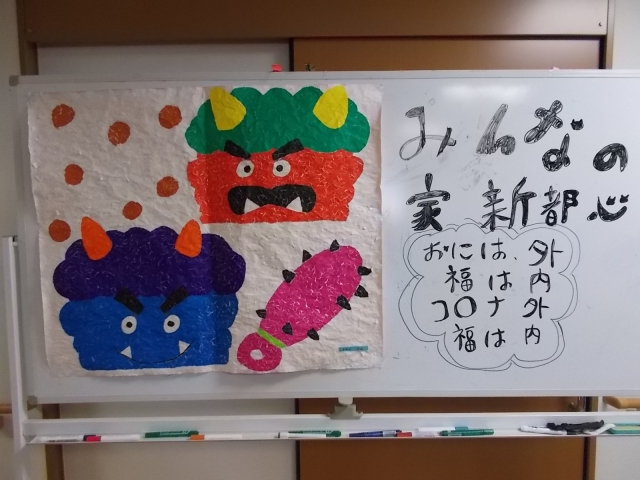 みんなの
家 新都心
おには、外
福は内
コロナ外
福は内